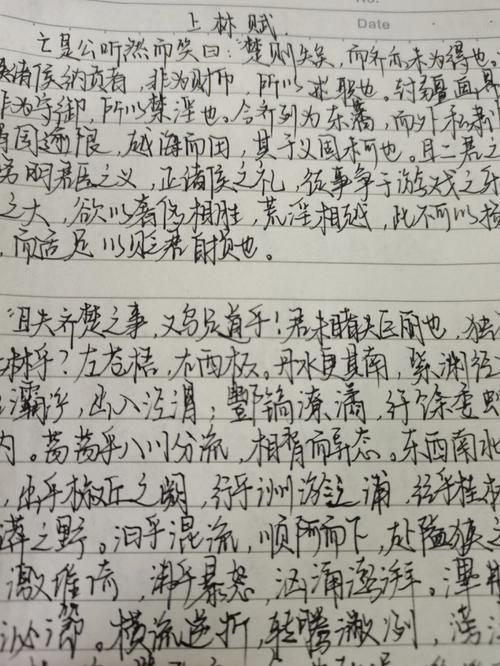 No.
上林赋
Date
亡是公听然而笑曰：楚则失矣，而齐亦未为得也。
诸侯纳贡者，非为财币，所以述职也。封疆画界
非为守御，所以禁淫也。今齐列为东藩，而外私肃
国逾限，越海而田，其于义固未可也。且二君之
明君臣之义，正诸侯之礼，徒事争于游戏之
之大，欲以奢侈相胜，荒淫相越，此不可以扬
，而适足以贬君自损也。
且夫齐楚之事，又乌足道乎！君未睹夫巨丽也，独
林乎？左苍梧，右西极。丹水更其南，紫渊径
灞浐，出入泾渭；酆镐潦潏，纡馀委蛇
内。荡荡乎八川分流，相背而异态。东西南北
，出乎椒丘之阙，行乎洲淤之浦，经乎桂
莽之野。汩乎混流，顺阿而下，赴隘狭之
激堆埼，沸乎暴怒，汹涌澎湃。滭
泌㴉。横流逆折，转腾潎洌，滂